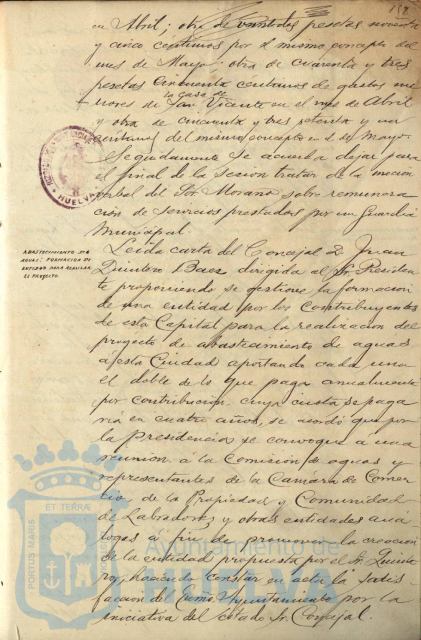 en Abril; otra de veintidos pesetas noventa
y cinco centimos por el mismo concepto del
mes de Mayo; otra de cuarenta y tres
pesetas cincuenta centimos de gastos me
nores de la casa de San Vicente en el mes de Abril
y otra de cincuenta y tres pesetas y un
centimos del mismo concepto en el de Mayo.
Seguidamente se acuerda dejar para
el final de la sesion tratar de la mocion
verbal del Sor. Morano sobre remunera
cion de servicios prestados por un Guardia
Municipal.
HUELVA
ABASTECIMIENTO DE
AGUAS: FORMACION DE
ENTIDAD PARA REALIZAR
EL PROYECTO.
Leida carta del Concejal D. Juan
Quintero Baez dirigida al Sr. Presiden
te proponiendo se gestione la formacion
de una entidad por los Contribuyentes
de esta Capital para la realizacion del
proyecto de abastecimiento de aguas
a esta Ciudad aportando cada uno
el doble de lo que paga anualmente
por contribucion cuya cuota se paga
ria en cuatro años, se acordó que por
la Presidencia se convoque a una
reunion á la Comision de aguas y
representantes de la Camara de Comer
cio, de la Propiedad y Comunidad
de Labradores y otras entidades aná
logas á fin de promover la creacion
de la entidad propuesta por el Sr. Quinte
ro, haciendo constar en acta la satis
faccion del Excmo. Ayuntamiento por la
iniciativa del citado Sr. Concejal.
PORTUS MARIS ET TERRAE
Ayuntamiento de